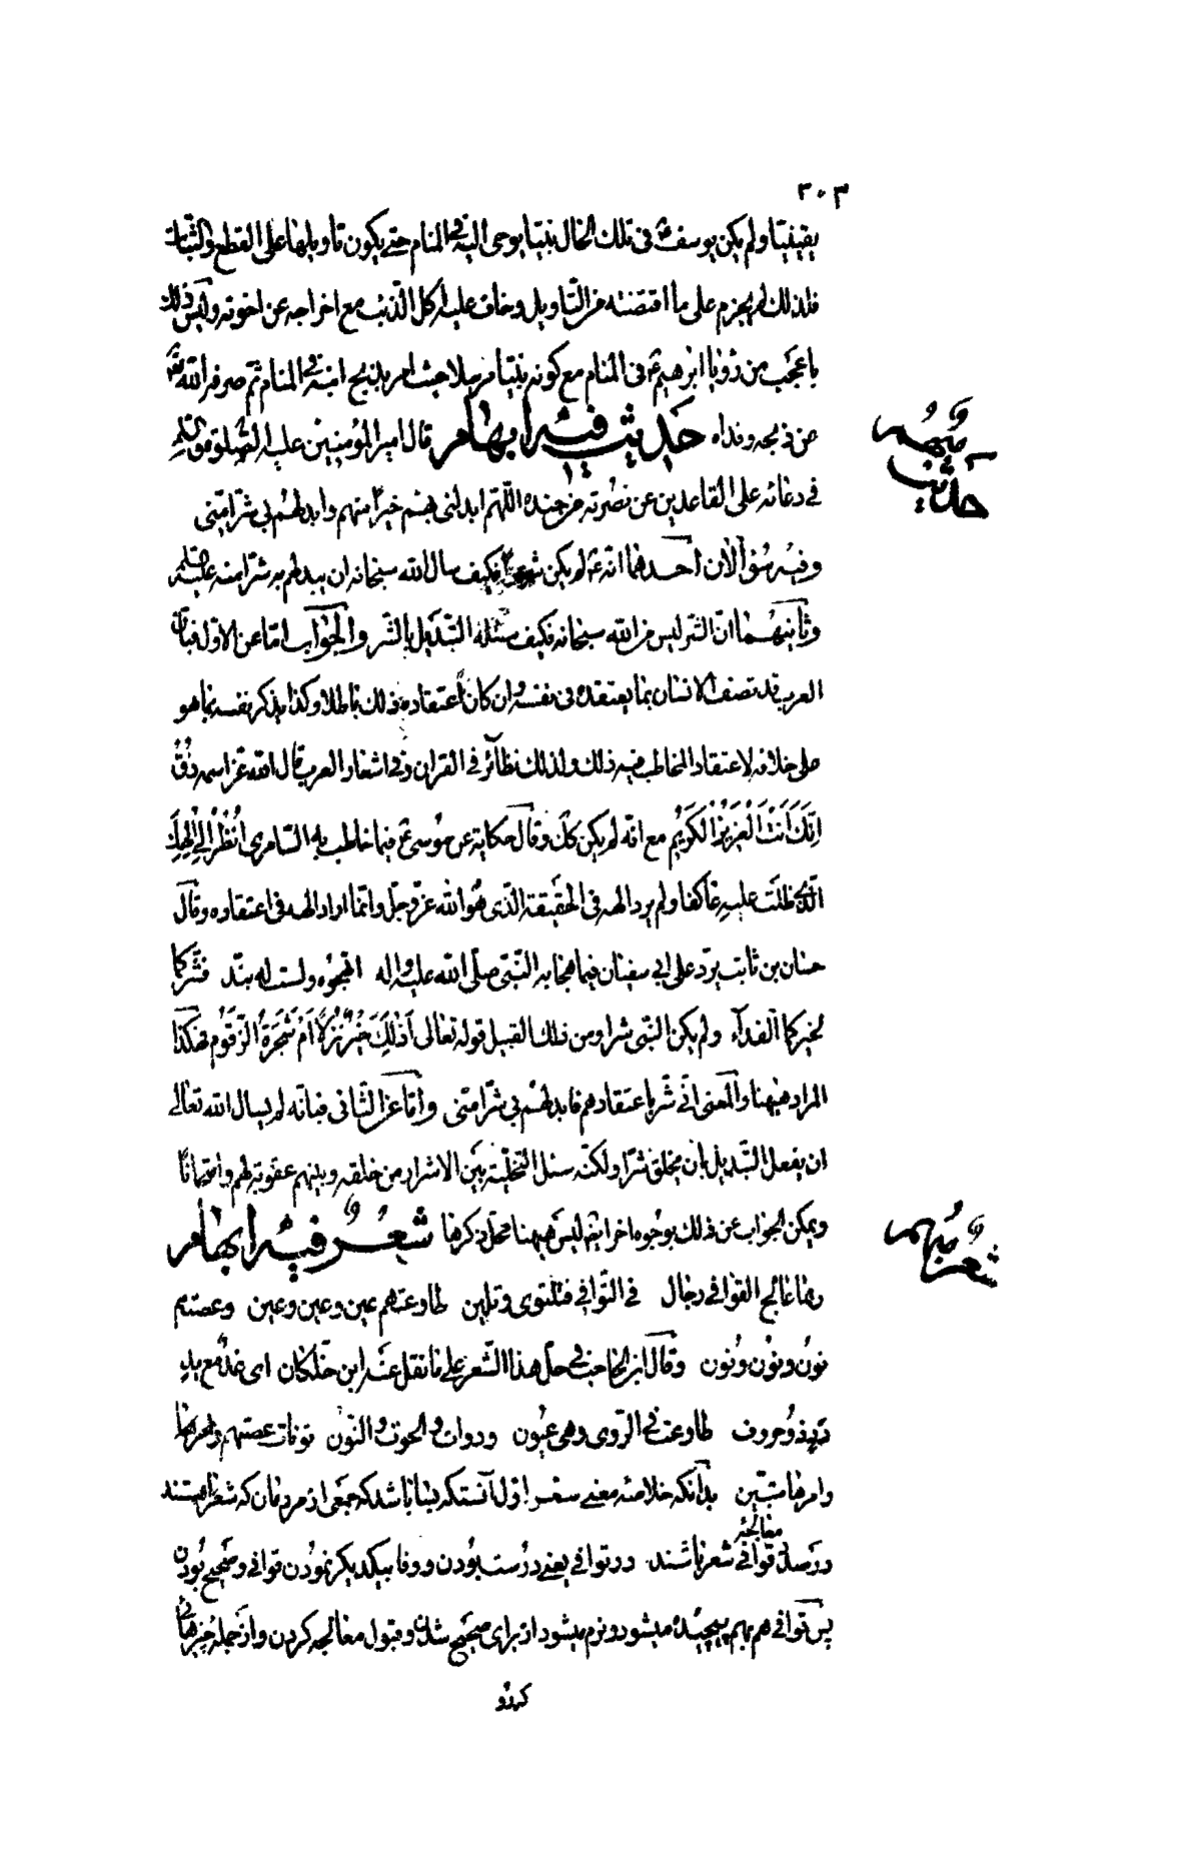 ٣٠٣
يقينيّا ولم يكن يوسف ع فى تلك الحال نبيّا يوحى اليه فى المنام حتّى يكون تاويلها على القطع والثبات
فلذلك لم يجزم على ما اقتضته من التّاويل وخاف عليه اكل الذّئب مع اخراجه عن اخوته وليس ذلك
باعجب من رؤيا ابرهيم ع فى المنام مع كونه نبيّا مرسلا حيث امر بذبح ابنه فى المنام ثمّ صرفه الله
عن ذبحه وفداه حَديث فيه ابهام قال امير المؤمنين عليه الصّلوة والسّلم
مبهم
حديث
فى دعائه على القاعدين عن نصرته من جنده اللّهم ابدلنى بهم خيرا منهم وابدلهم بى شرّا منّى
وفيه سؤالان احدهما انّه ع لم يكن شرّا فكيف سال الله سبحانه ان يبدلهم به شرّا منه عليه السلم
وثانيهما انّ الشر ليس من الله سبحانه فكيف سئله التبديل بالشّر والجواب امّا عن الاوّل فبانّ
العرب قد تصف الانسان بما يعتقده فى نفسه وان كان اعتقاده ذلك باطلا وكذا يذكر نفسه بما هو
على خلافه لاعتقاد المخاطب فيه ذلك ولذلك نظائر فى القران وفى اشعار العرب قال الله عز اسمه ذُقْ
اِنَّكَ اَنْتَ الْعَزِيزُ الْكَرِيمُ مع انّه لم يكن كك وقال حكاية عن موسى ع فيما خاطب به السّامرى اُنْظُرْ اِلى اِلهِكَ
الَّذى ظَلْتَ عليه عاكفا ولم يرد الهه فى الحقيقة الّذى هو الله عزّ وجلّ وانّما اراد الهه فى اعتقاده وقال
حسّان بن ثابت يردّ على ابى سفيان فيما هجا به النّبىّ صلّى الله عليه واله اتهجوه ولست له بندّ فشرّكما
لخيركما الفداء ولم يكن النّبى شرا ومن ذلك القبيل قوله تعالى اَذلِكَ خَيْرٌ نُزُلًا اَمْ شَجَرَةُ الزَّقُّوم فهكذا
المراد ههنا والمعنى انّى شرّ باعتقادهم فابدلهم بى شرّا منّى وامّا عن الثّانى فبانّه لم يسال الله تعالى
ان يفعل التّبديل بان يخلق شرّا ولكنّه سئل التّخلية بين الاشرار من خلقه وبينهم عقوبة لهم وامتحانا
ويمكن الجواب عن ذلك بوجوه اخر ليس ههنا محل ذكرها شعرٌ فيه ابهام
مبهم
شعر
ربما عالج القوافى رجال فى القوافى فتلتوى وتلين طاوعتهم عين وعين وعين وعصتهم
نون ونون ونون وقال ابن الحاجب فى حلّ هذا الشّعر على ما نقل عنه ابن خلّكان اى غد مع يد
دد ذو حروف طاوعت فى الرّوى وهى عيون ودواة والحوت والنّون نونات عصتهم وامرها
وامرها مستبين بدانكه خلاصه معنى شعر اوّل آنستكه بسا باشد كه جمعى از مردمان كه شعرا هستند
معالجه
در صدد قوافى شعر باشند در توافى يعنى درست بودن ووفا بيكديكر نمودن قوافى وصحيح بودن
پس قوافى هم بهم پيچيده ميشود ونرم ميشود از براى صحيح شدن وقبول معالجه كردن واز جمله چيزهائى